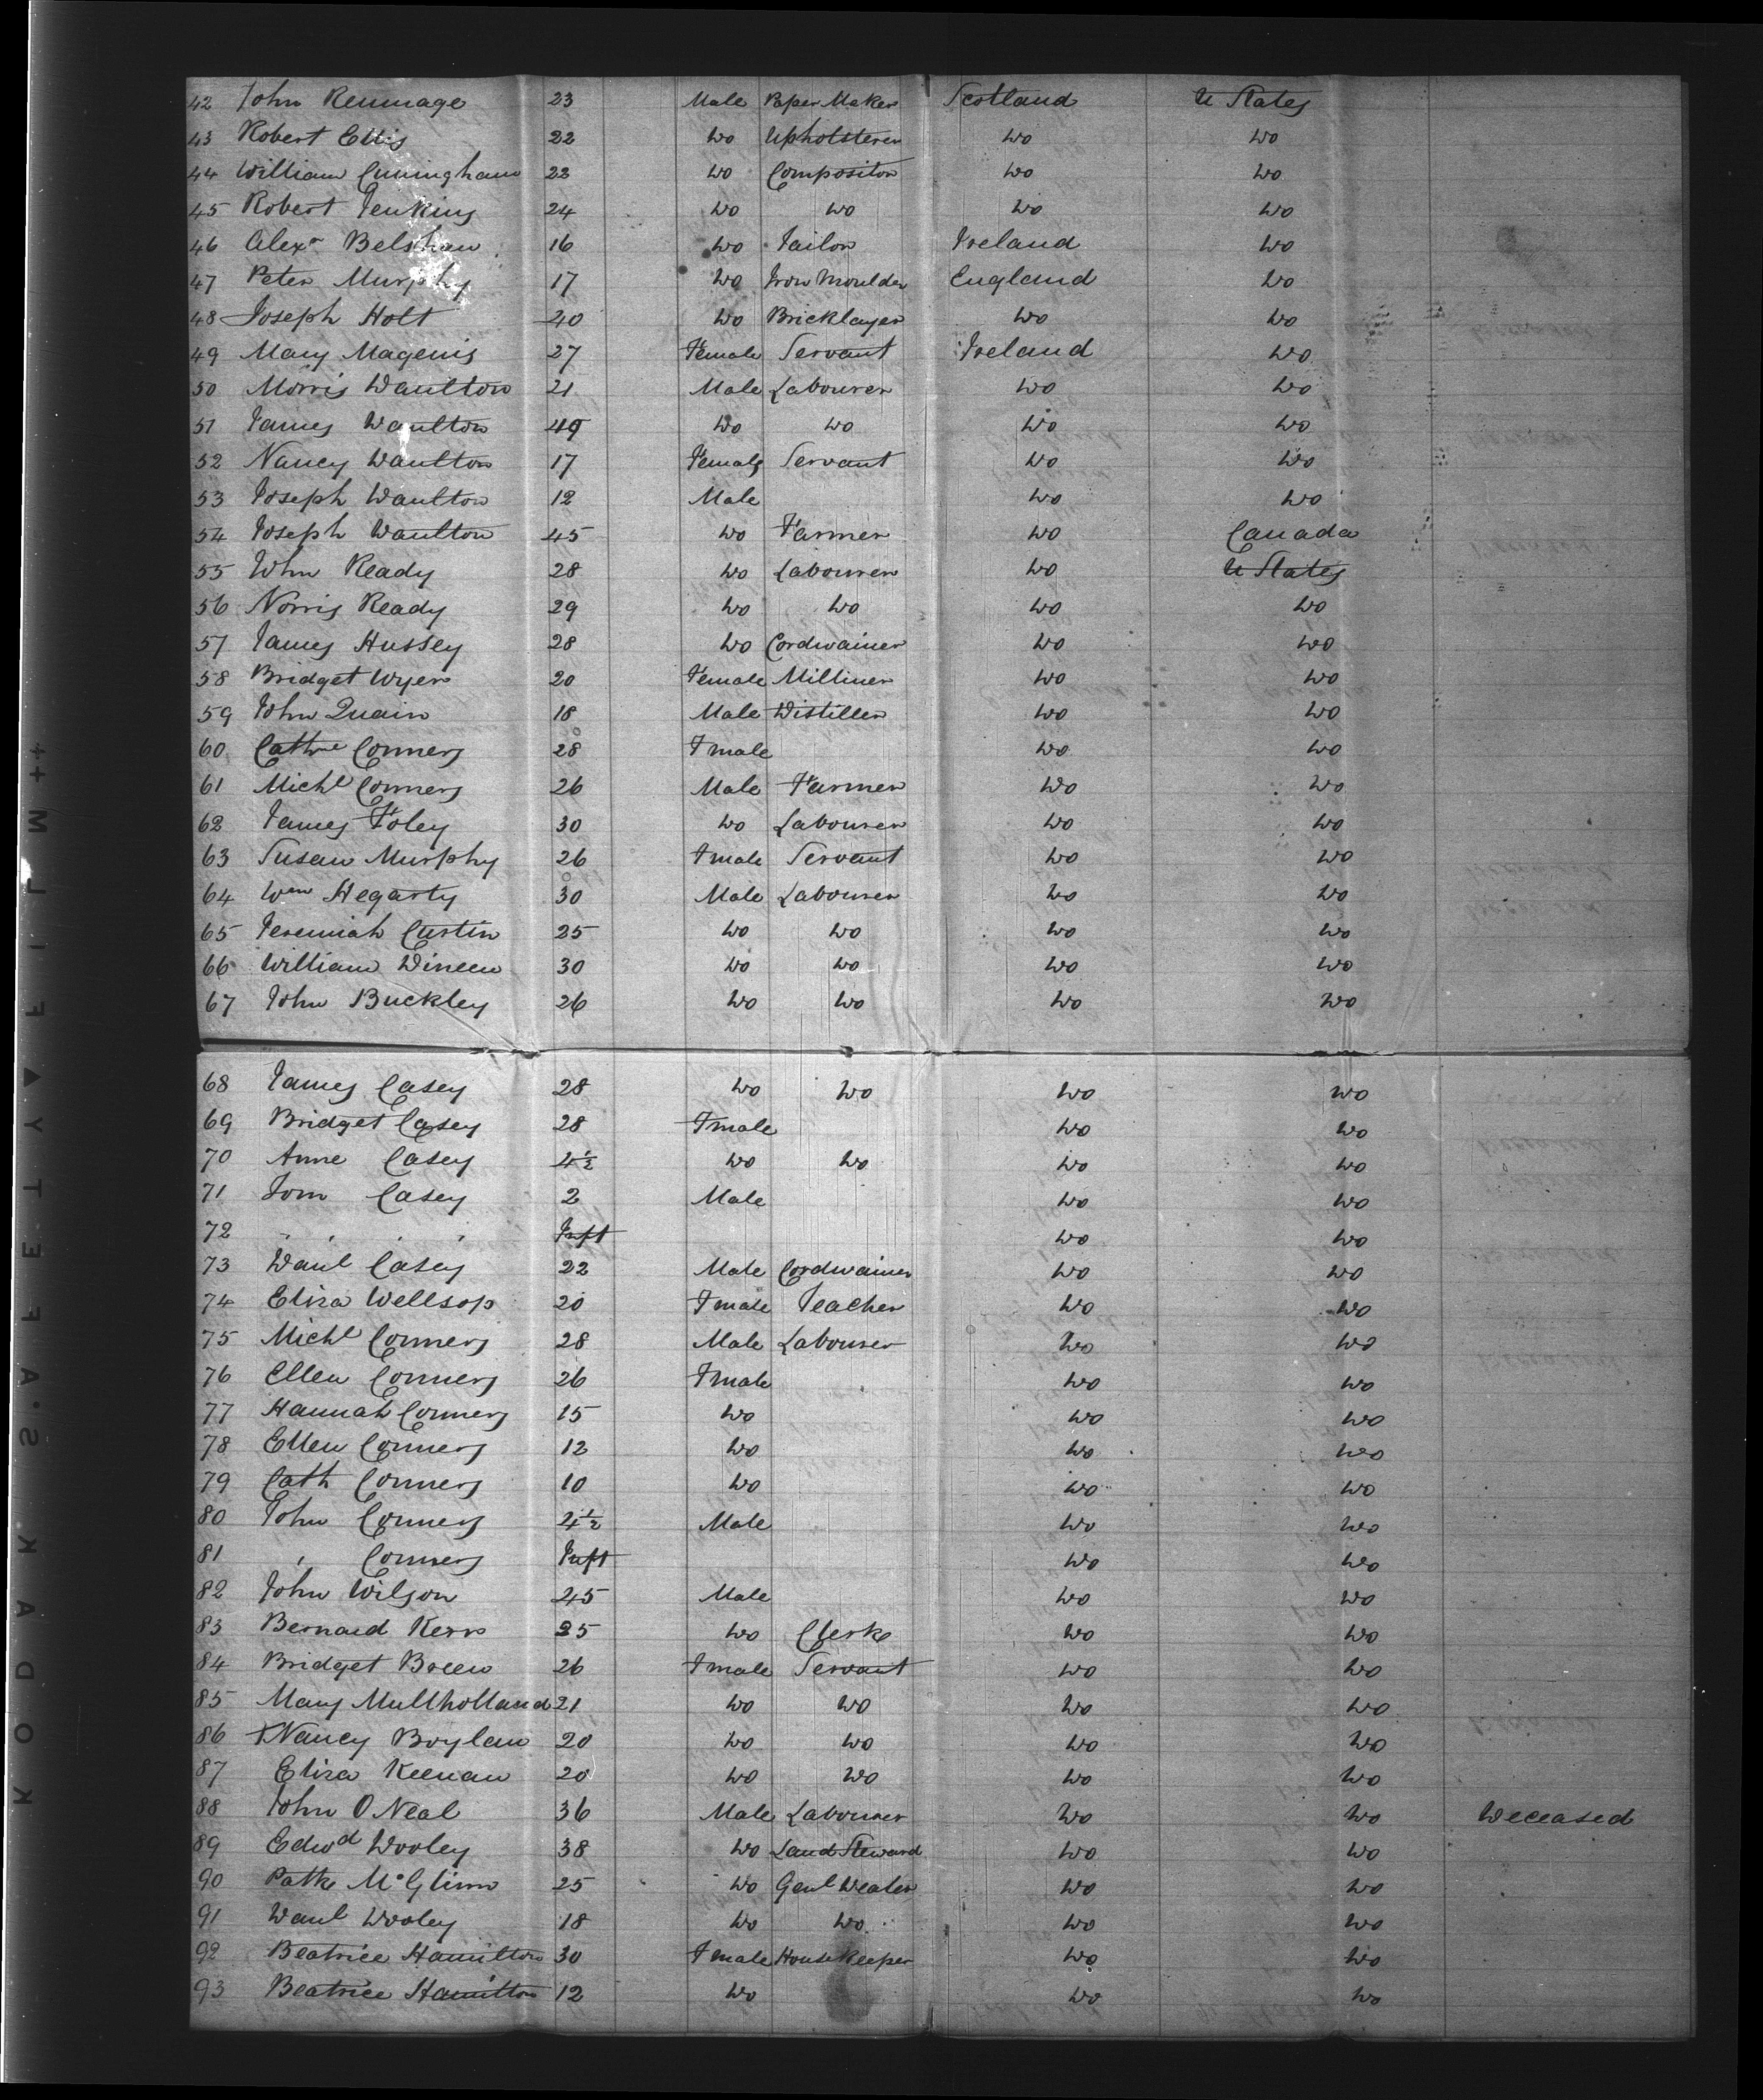 42 John Rennage 23 Male Paper Maker Scotland U States
43 Robert Ellis 22 Do Upholsterer Do Do
44 William Cuningham 22 Do Compositor Do Do
45 Robert Jenkins 24 Do Do Do Do
46 Alexr Belshaw 16 Do Tailor Ireland Do
47 Peter Murphy 17 Do Iron Moulder England Do
48 Joseph Holt 20 Do Bricklayer Do Do
49 Mary Magenis 27 Female Servant Ireland Do
50 Morris Daulton 21 Male Labourer Do Do
51 James Daulton 49 Do Do Do Do
52 Nancy Daulton 17 Female Servant Do Do
53 Joseph Daulton 12 Male Do Do
54 Joseph Daulton 45 Do Farmer Do Canada
55 John Ready 28 Do Labourer Do U States
56 Norris Ready 29 Do Do Do Do
57 James Hussey 28 Do Cordwainer Do Do
58 Bridget Dyer 20 Female Milliner Do Do
59 John Quain 18 Male Distiller Do Do
60 Cathne Conners 28 Fmale Do Do
61 Michl Conners 26 Male Farmer Do Do
62 James Foley 30 Do Labourer Do Do
63 Susan Murphy 26 Fmale Servant Do Do
64 Wm Hegarty 30 Male Labourer Do Do
65 Jeremiah Curtin 25 Do Do Do Do
66 William Dineen 30 Do Do Do Do
67 John Buckley 26 Do Do Do Do
68 James Casey 28 Do Do Do Do
69 Bridget Casey 28 Fmale Do Do
70 Anne Casey 4½ Do Do Do Do
71 Tom Casey 2 Male Do Do
72 " " " Inft Do Do
73 Danl Casey 22 Male Cordwainer Do Do
74 Eliza Wellsop 20 Fmale Teacher Do Do
75 Michl Conners 28 Male Labourer Do Do
76 Ellen Conners 26 Fmale Do Do
77 Hannah Conners 15 Do Do Do
78 Ellen Conners 12 Do Do Do
79 Cath Conners 10 Do Do Do
80 John Conners 4½ Male Do Do
81 " Conners Inft Do Do
82 John Wilson 45 Male Do Do
83 Bernard Kerr 25 Do Clerk Do Do
84 Bridget Breen 26 Fmale Servant Do Do
85 Mary Mullholland 21 Do Do Do Do
86 Nancy Boylan 20 Do Do Do Do
87 Eliza Keenan 20 Do Do Do Do
88 John O Neal 36 Male Labourer Do Do Deceased
89 Edwd Dooley 38 Do Land Steward Do Do
90 Patk McGlinn 25 Do Genl Dealer Do Do
91 Danl Dooley 18 Do Do Do Do
92 Beatrice Hamilton 30 Fmale HouseKeeper Do Do
93 Beatrice Hamilton 12 Do Do Do
KODAK S.AFETY FILM